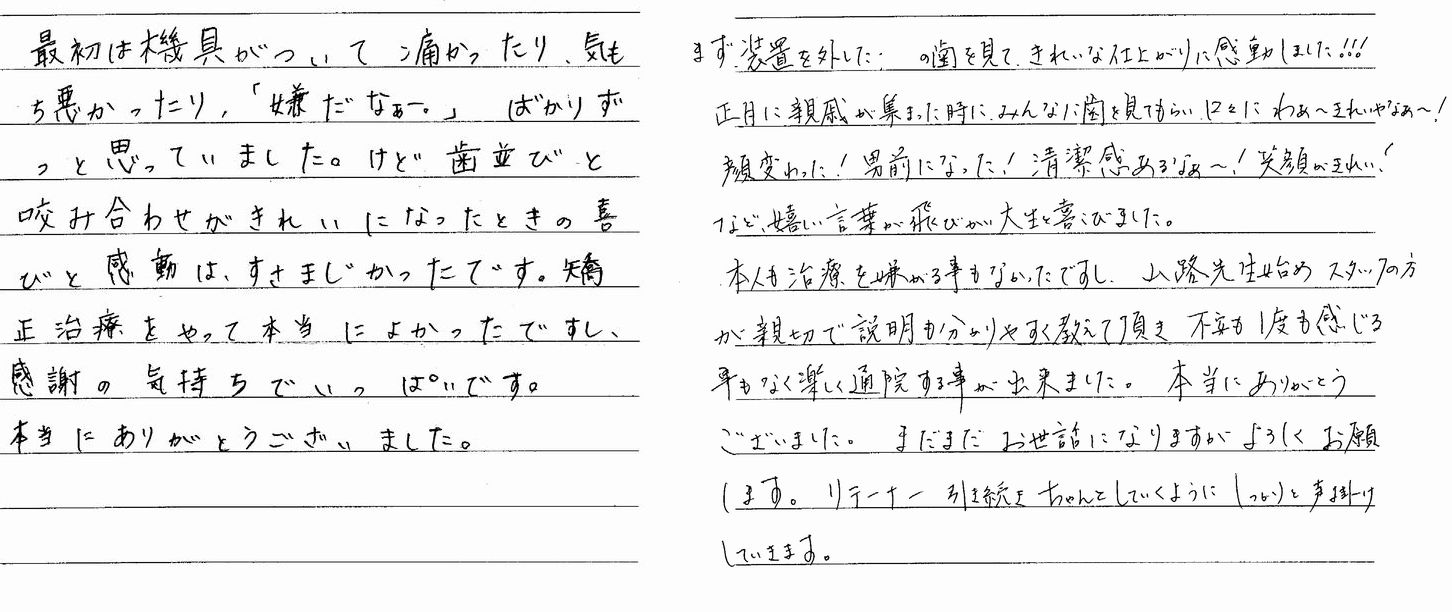 最初は機具がついて 痛かったり、気も
ち悪かったり、「嫌だなぁー。」 ばかりず
っと思っていました。けど 歯並びと
咬み合わせがきれいになったときの喜
びと感動は、すさまじかったです。矯
正治療をやって本当によかったですし、
感謝の気持ちでいっぱいです。
本当にありがとうございました。
まず装置を外した の歯を見て、きれいな仕上がりに感動しました!!!
正月に親戚が集まった時に、みんなに歯を見てもらい、口々に わぁ〜きれいやなぁ〜!
顔変わった!男前になった!清潔感あるなぁ〜!笑顔がきれい!
など、嬉しい言葉が飛びかい 大生と喜こびました。
本人も治療を嫌がる事もなかったですし、山路先生始め スタッフの方
が親切で説明も分かりやすく教えて頂き 不安も1度も感じる
事もなく楽しく通院する事が出来ました。本当にありがとう
ございました。 まだまだ お世話になりますが よろしく お願
します。リテーナー 引き続き ちゃんとしていくように しっかりと 声掛け
していきます。